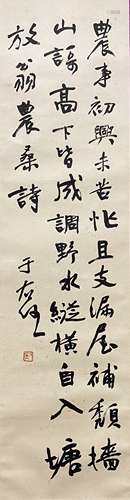 農事初興未苦忙且支漏屋補頹牆
山謌高下皆成調野水縱橫自入塘
放翁農桑詩
于右任